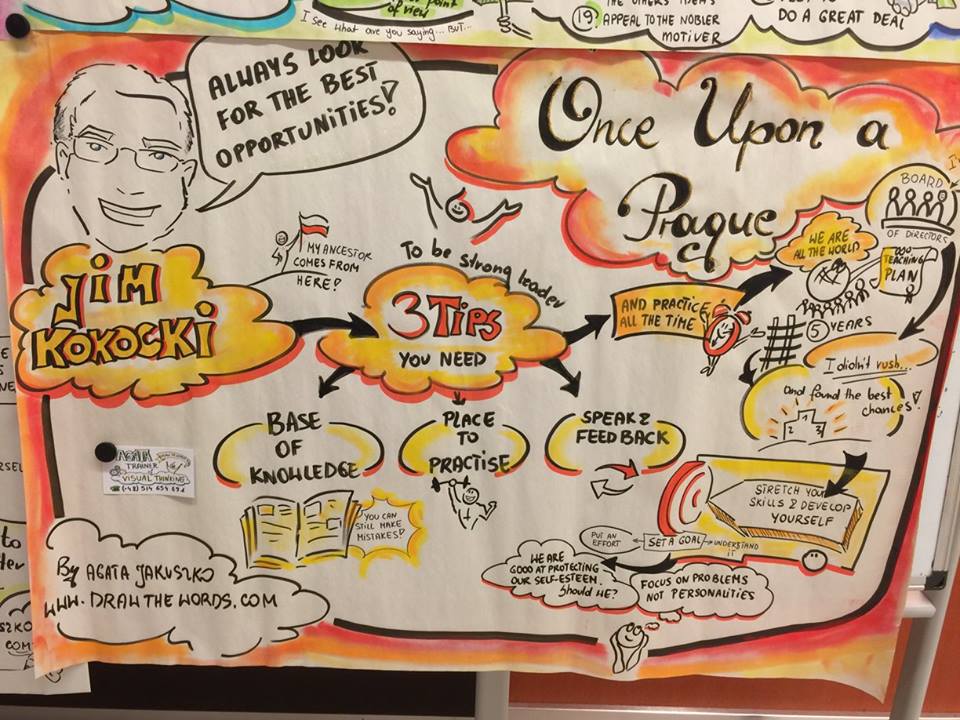 point
of view
I see what are you saying... BUT...
THE OTHER'S IDEAS
19. APPEAL TO THE NOBLER
MOTIVER
DO A GREAT DEAL
ALWAYS LOOK
FOR THE BEST
OPPORTUNITIES!
Once Upon a
Prague
JIM
KOKOCKI
MY ANCESTOR
COMES FROM
HERE!
To be strong leader
3 TIPS
YOU NEED
AND PRACTICE
ALL THE TIME
WE ARE
ALL THE WORLD
BOARD
OF DIRECTORS
TEACHING
PLAN
5 YEARS
I didn't rush...
and found the best
chances!
2 1 3
BASE
OF
KNOWLEDGE
PLACE
TO
PRACTISE
SPEAK &
FEEDBACK
YOU CAN
STILL MAKE
MISTAKES!
STRETCH YOUR
SKILLS & DEVELOP
YOURSELF
PUT AN
EFFORT
SET A GOAL
UNDERSTAND
IT
WE ARE
GOOD AT PROTECTING
OUR SELF-ESTEEM.
Should WE?
FOCUS ON PROBLEMS
NOT PERSONALITIES
AGATA
TRAINER
VISUAL THINKING
By AGATA JAKUSZKO
WWW.DRAWTHEWORDS.COM